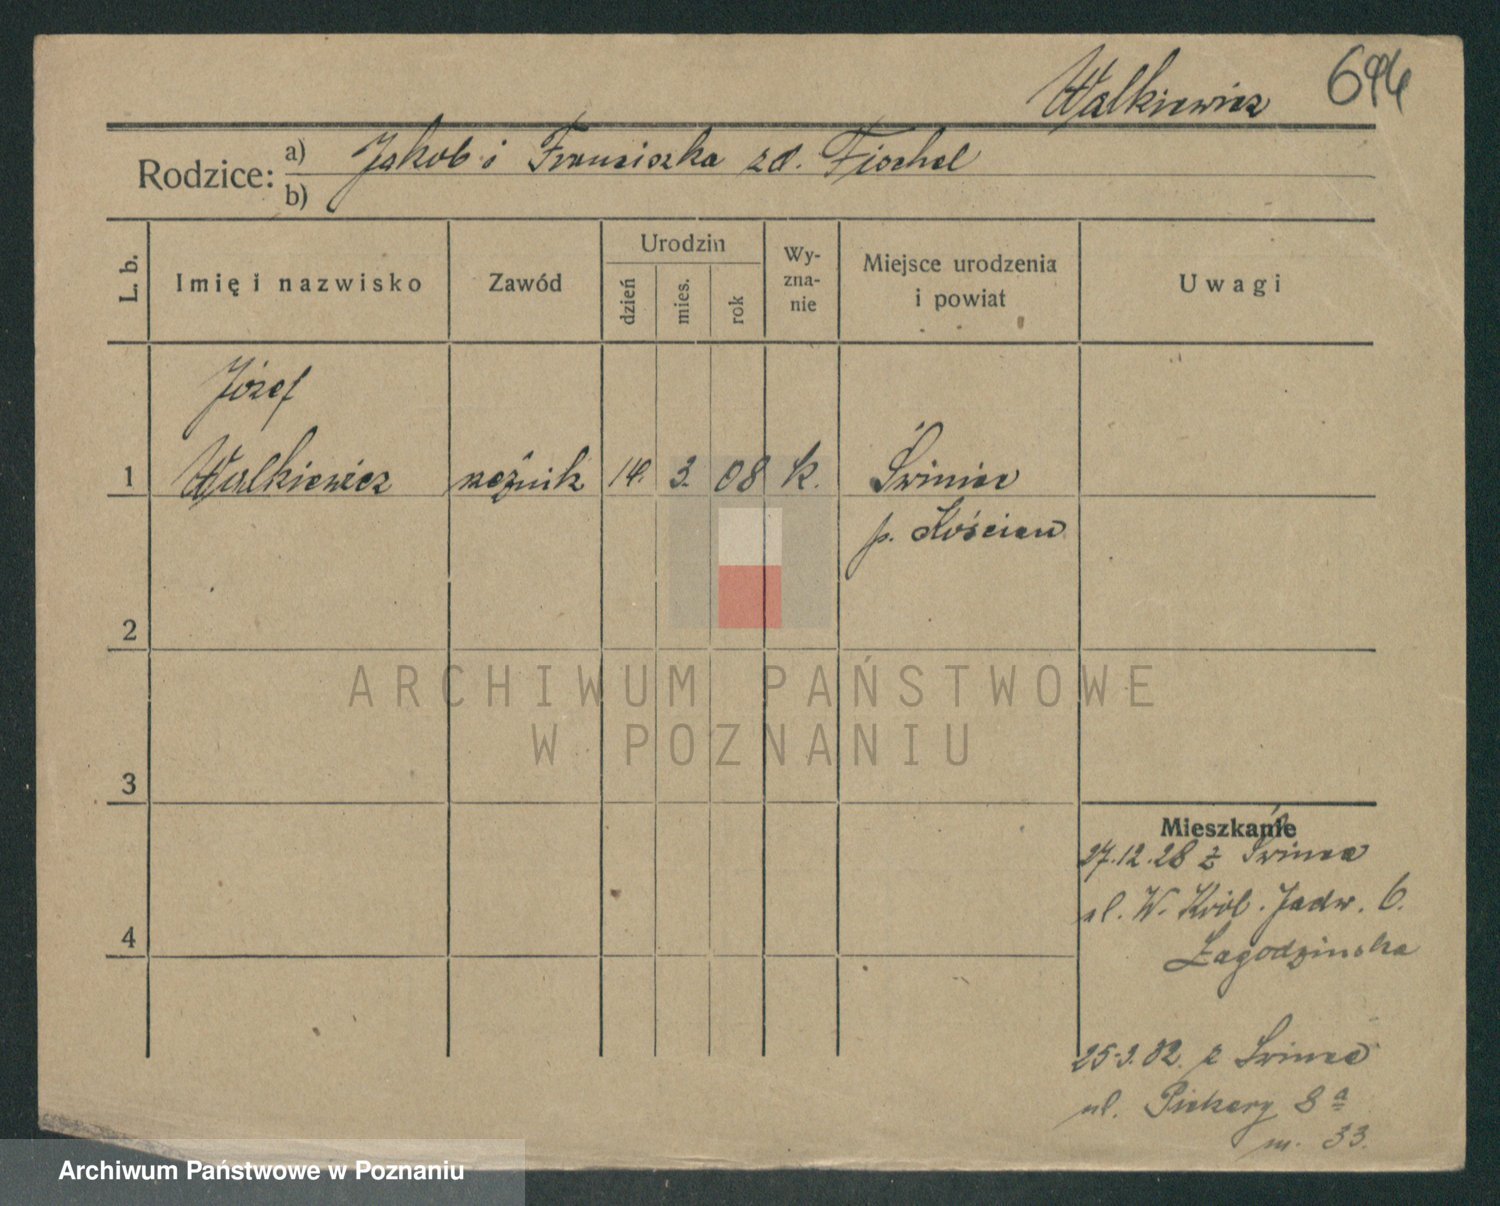 Walkiewicz 694
Rodzice: a) Jakob i Franciszka zd. Fischel
b)
L. b. Imię i nazwisko Zawód Urodzin dzień mies. rok Wyznanie Miejsce urodzenia i powiat Uwagi
Józef
1 Walkiewicz rzeźnik 14. 3. 08 k. Śwíniec
p. Kościan
2
ARCHIWUM PAŃSTWOWE
W POZNANIU
3
Mieszkanie
27.12.28 z Świńca
ul. W. Król. Jadw. 6.
4
Łagodzinska
25.3.32. z Świńca
ul. Piekary 8a
m. 33.
Archiwum Państwowe w Poznaniu